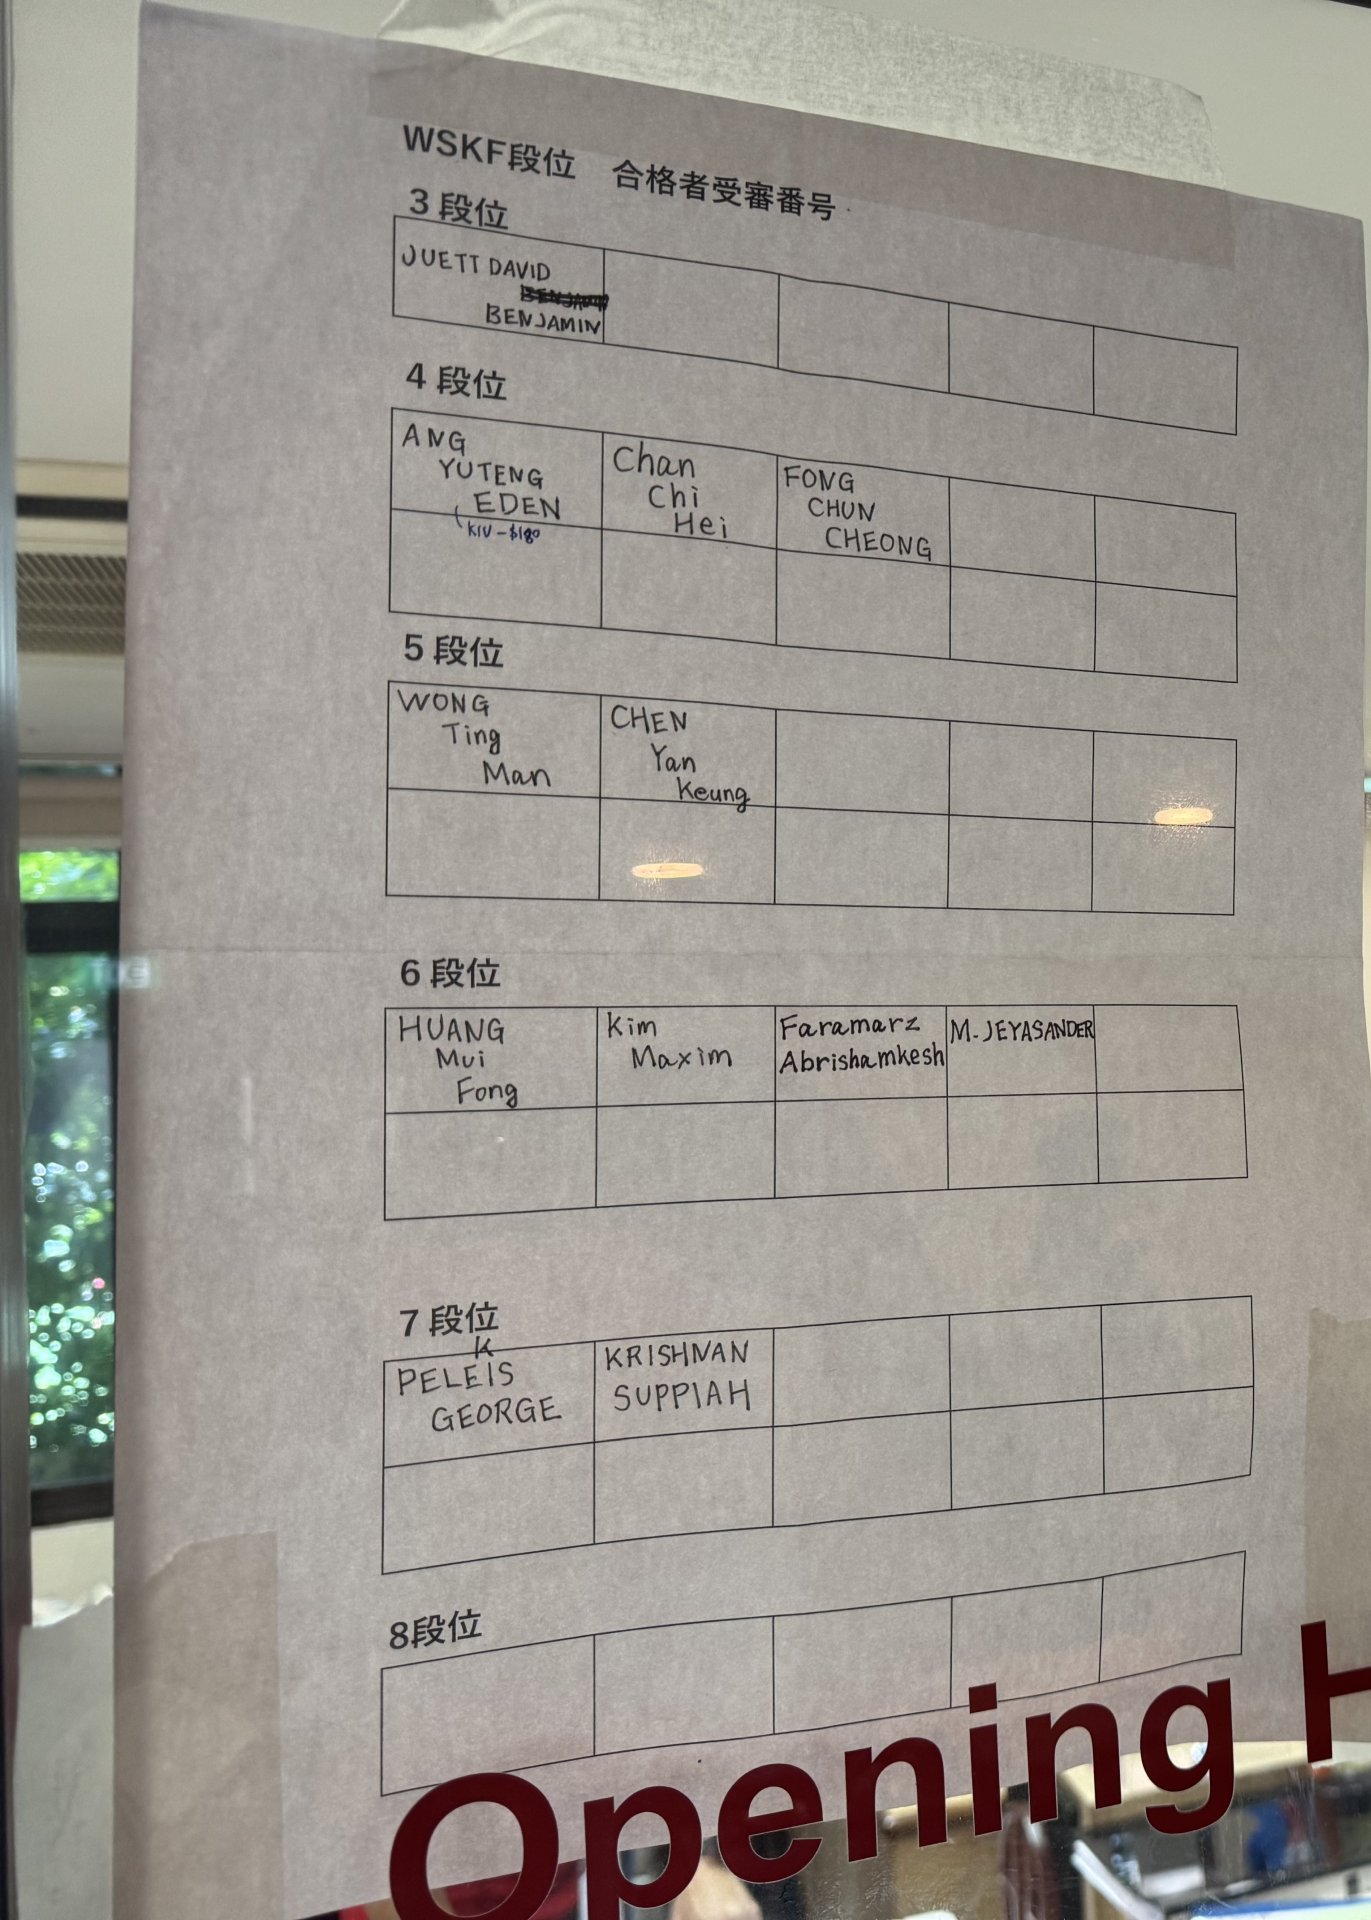 WSKF段位　合格者受審番号
3 段位
JUETT DAVID
BENJAMIN
4 段位
ANG
YUTENG
EDEN
(KIV - $180
Chan
Chi
Hei
FONG
CHUN
CHEONG
5 段位
WONG
Ting
Man
CHEN
Yan
Keung
6 段位
HUANG
Mui
Fong
Kim
Maxim
Faramarz
Abrishamkesh
M. JEYASANDER
7 段位
K
PELEIS
GEORGE
KRISHNAN
SUPPIAH
8段位
Opening H